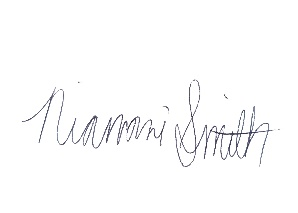 Niammi Smith